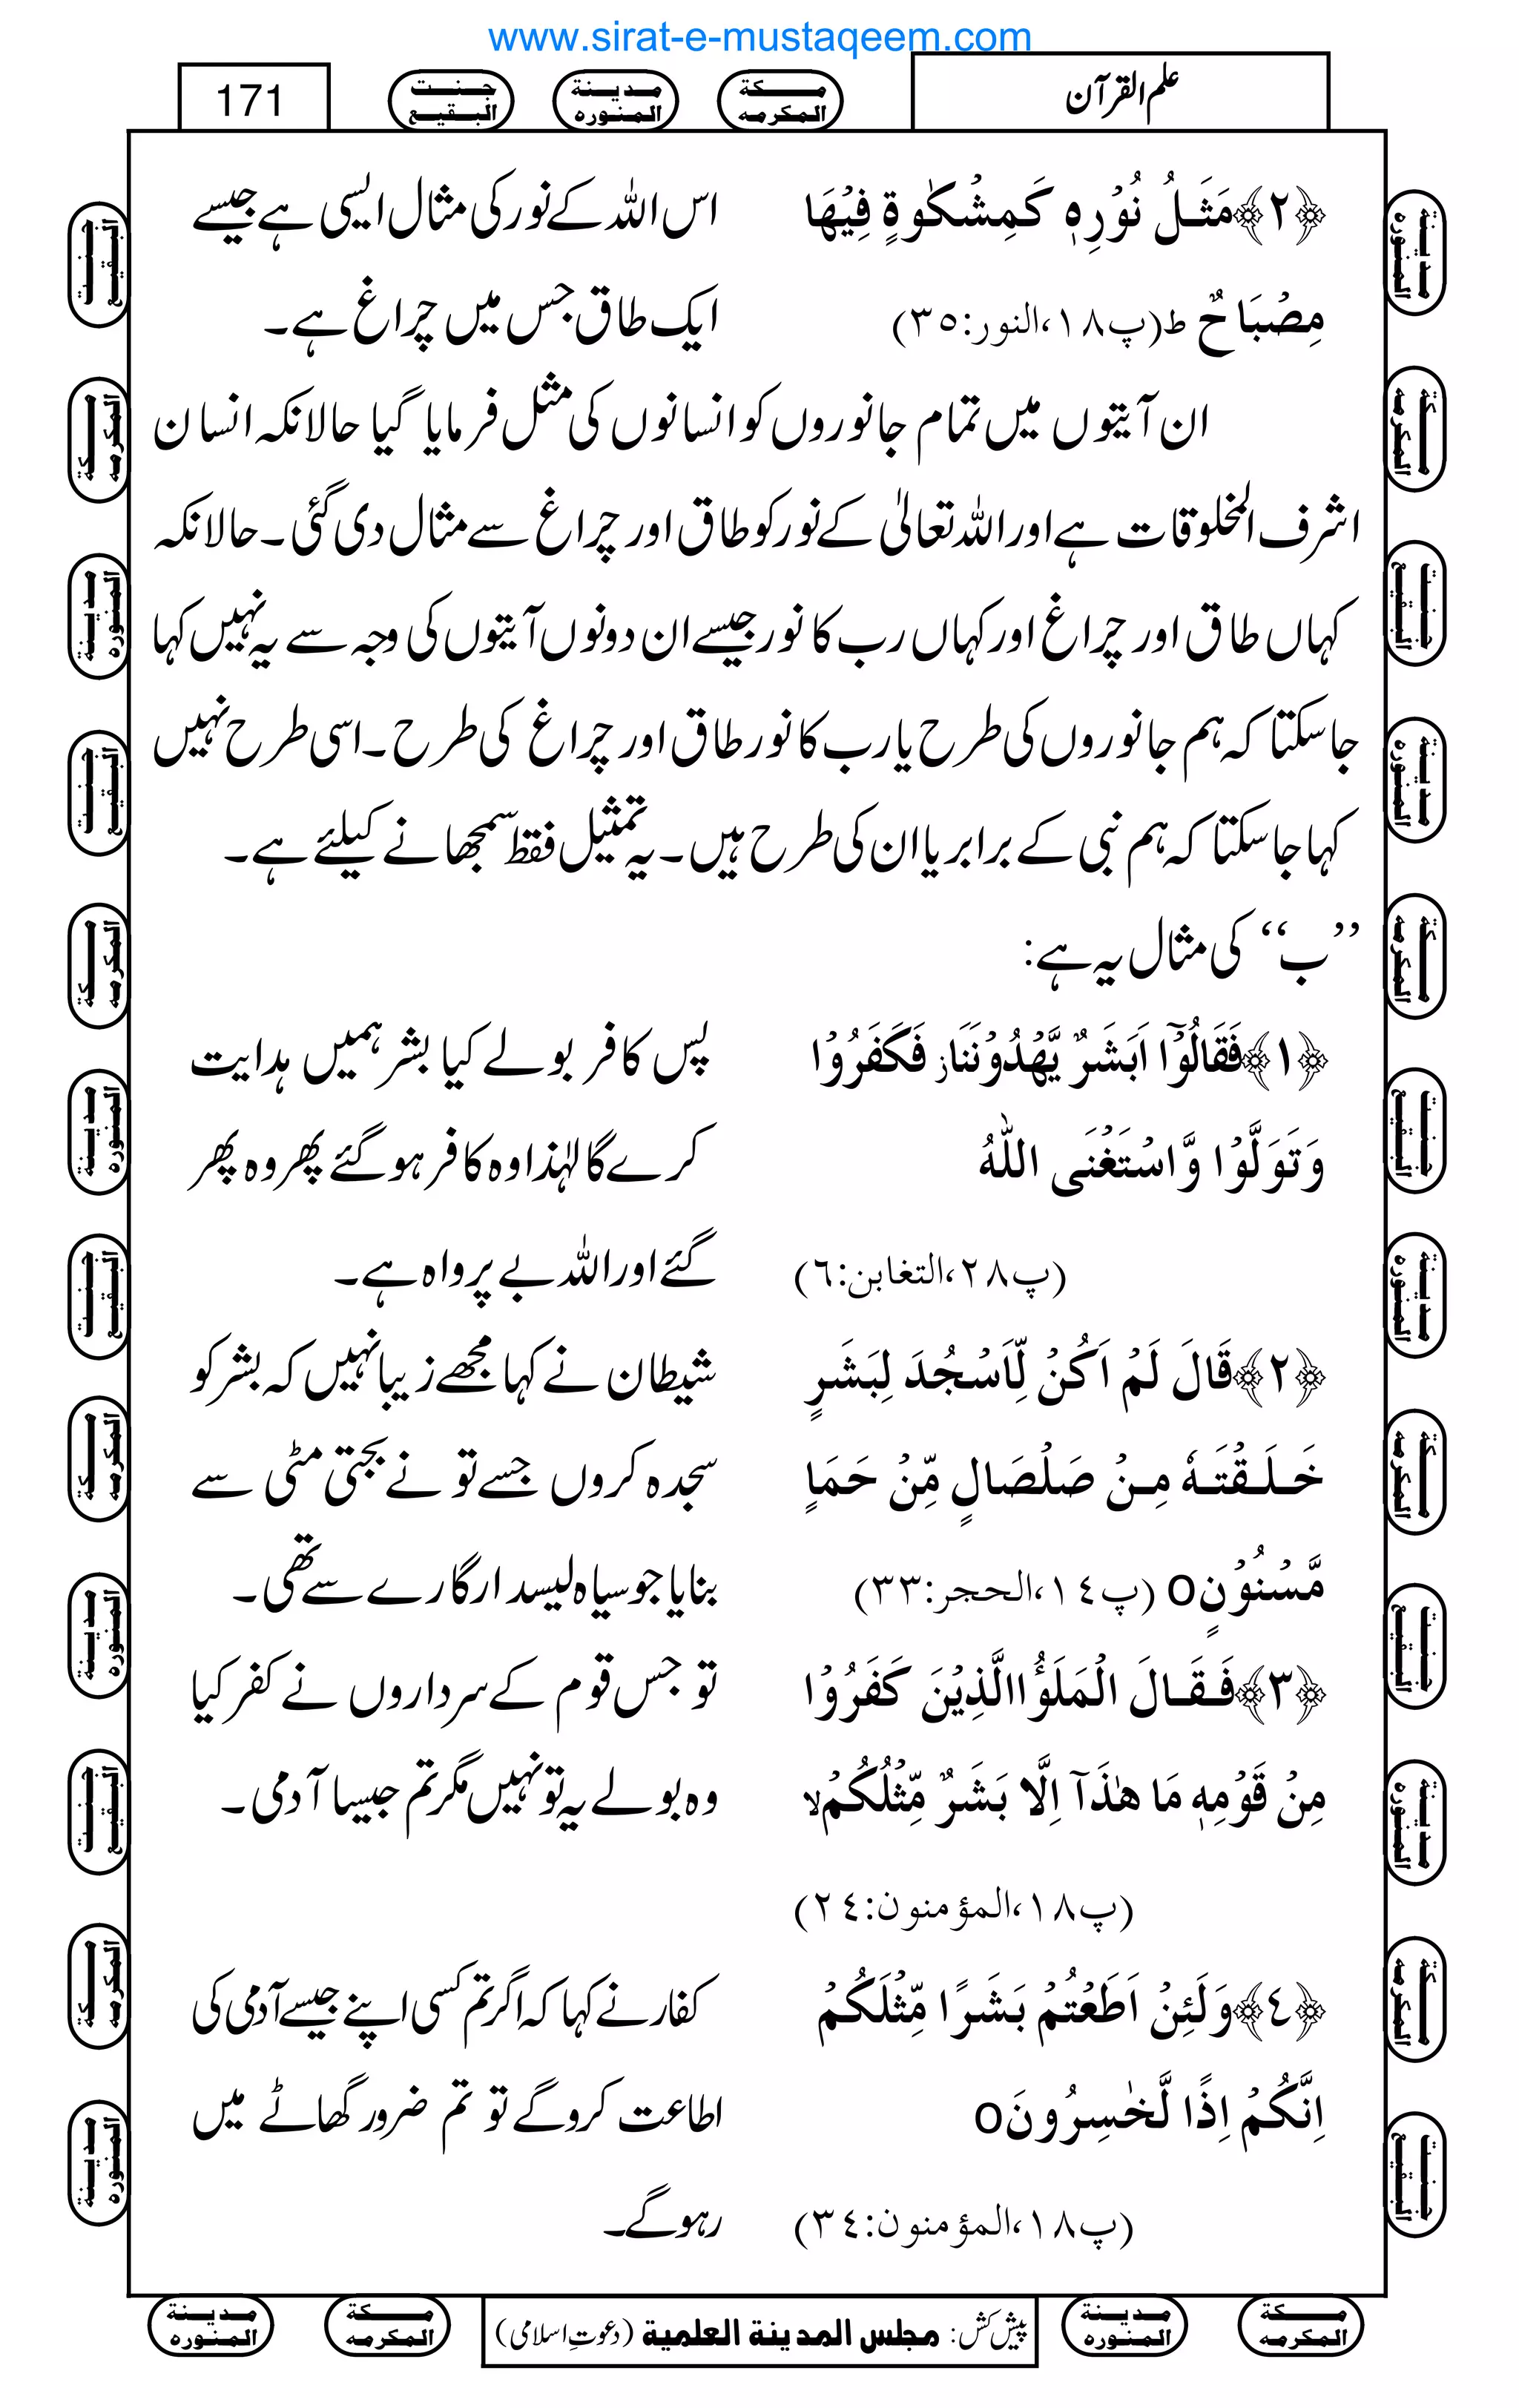 www.sirat-e-mustaqeem.com
علم القرآن
مكة المكرمه
مدينة المنوره
جنت البقيع
171
﴿٢﴾مَثَلُ نُوْرِهٖ كَمِشْكٰوةٍ فِيْهَا
اس اللہ کے نور کی مثال ایسی ہے جیسے
مِصْبَاحٌ ط(پ١٨،النور:٣٥)
ایک طاق جس میں چراغ ہے۔
ان آیتوں میں تمام جانوروں کو انسانوں کی مثل فرمایا گیا حالانکہ انسان
اشرف المخلوقات ہے اور اللہ تعالیٰ کے نور کو طاق اور چراغ سے مثال دی گئی۔ حالانکہ
کہاں طاق اور چراغ اور کہاں رب کا نور جیسے ان دونوں آیتوں کی وجہ سے یہ نہیں کہا
جا سکتا کہ ہم جانوروں کی طرح یا رب کا نور طاق اور چراغ کی طرح۔ اسی طرح نہیں
کہا جا سکتا کہ ہم نبی کے برابر یا ان کی طرح ہیں۔ یہ تمثیل فقط سمجھانے کیلئے ہے۔
’’ب‘‘ کی مثال یہ ہے:
﴿١﴾فَقَالُوْٓا اَبَشَرٌ يَّهْدُوْنَنَا ز فَكَفَرُوْا
پس کافر بولے کیا بشر ہمیں ہدایت
وَتَوَلَّوْا وَّاسْتَغْنَى اللّٰهُ
کرے گا لہٰذا وہ کافر ہوگئے پھر وہ پھر
(پ٢٨،التغابن:٦)
گئے اور اللہ بے پرواہ ہے۔
﴿٢﴾قَالَ لَمْ اَكُنْ لِّاَسْجُدَ لِبَشَرٍ
شیطان نے کہا مجھے زیبا نہیں کہ بشر کو
خَلَقْتَهٗ مِنْ صَلْصَالٍ مِّنْ حَمَاٍ
سجدہ کروں جسے تو نے بجتی مٹی سے
مَّسْنُوْنٍO (پ١٤،الحجر:٣٣)
بنایا جو سیاہ لیسدار گارے سے تھی۔
﴿٣﴾فَقَالَ الْمَلَؤُاالَّذِيْنَ كَفَرُوْا
تو جس قوم کے سرداروں نے کفر کیا
مِنْ قَوْمِهٖ مَا هٰذَآ اِلَّا بَشَرٌ مِّثْلُكُمْ لا
وہ بولے یہ تو نہیں مگر تم جیسا آدمی۔
(پ١٨،المؤمنون:٢٤)
﴿٤﴾وَلَئِنْ اَطَعْتُمْ بَشَرًا مِّثْلَكُمْ
کفار نے کہا کہ اگر تم کسی اپنے جیسے آدمی کی
اِنَّكُمْ اِذًا لَّخٰسِرُونَO
اطاعت کرو گے تو تم ضرور گھاٹے میں
(پ١٨،المؤمنون:٣٤)
رہو گے۔
مكة المكرمه
مدينة المنوره
پیش کش: مجلس المدينة العلمية (دعوتِ اسلامی)
مكة المكرمه
مدينة المنوره